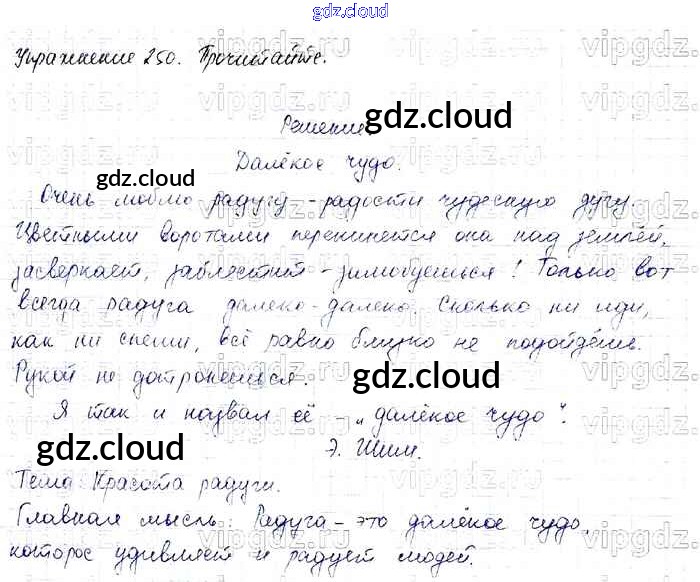 gdz.cloud
Упражнение 250. Прочитайте.
Решение
gdz.cloud
Далёкое чудо.
gdz.cloud
Очень люблю радугу - радости чудесную дугу.
Цветными воротами перекинется она над землёй,
засверкает, заблестит - залюбуешься! Только вот
всегда радуга далеко-далеко. Сколько ни иди,
как ни спеши, всё равно близко не подойдёшь.
Рукой не дотронешься.
gdz.cloud
Я так и назвал её - „далёкое чудо".
gdz.cloud
Э. Шим.
Тема Красота радуги.
Главная мысль: Радуга - это далёкое чудо,
которое удивляет и радует людей.
vipgdz.ru